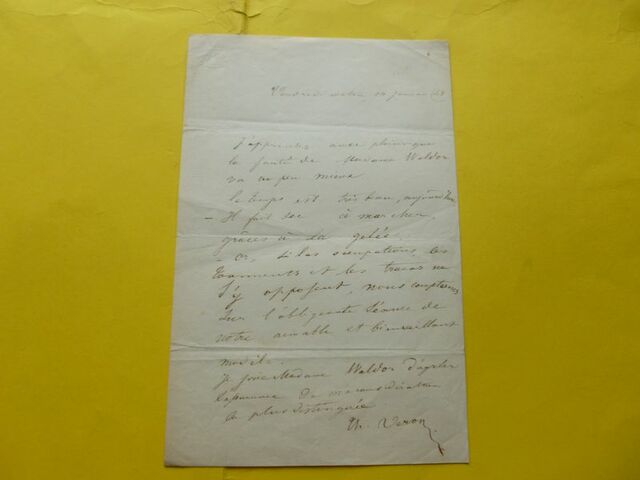 J'apprends avec plaisir que
la santé de Madame Waldor
va un peu mieux
le temps est très beau, aujourd'hui
— Il fait sec à marcher,
grâces à la gelée.
or, si les occupations, les
tourments et les tracas ne
s'y opposent, nous comptons
sur l'obligeante séance de
notre aimable et bienveillant
modèle.
je prie Madame Waldor d'agréer
l'assurance de ma considération
la plus distinguée
Th. Veron